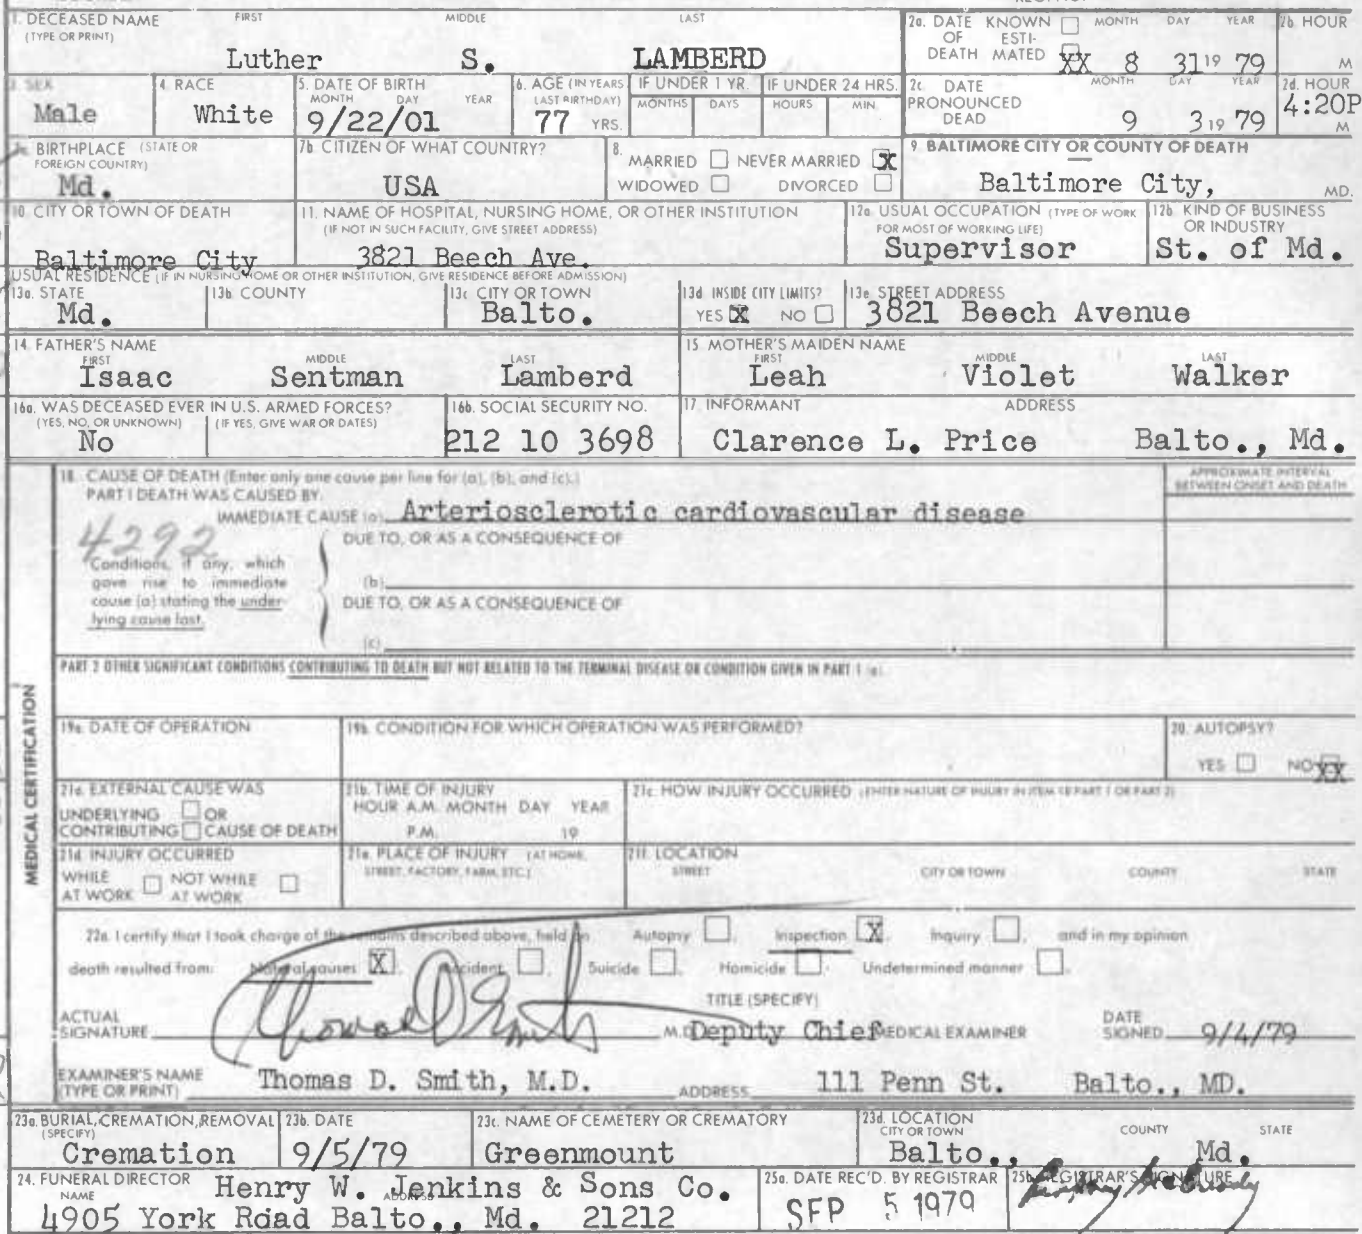 1. DECEASED NAME (TYPE OR PRINT) FIRST MIDDLE LAST
Luther S. LAMBERD
2a. DATE OF DEATH KNOWN ESTI-MATED XX MONTH DAY YEAR 8 31 19 79
2b. HOUR M
3. SEX Male
4. RACE White
5. DATE OF BIRTH MONTH DAY YEAR 9/22/01
6. AGE (IN YEARS LAST BIRTHDAY) 77 YRS.
IF UNDER 1 YR. MONTHS DAYS
IF UNDER 24 HRS. HOURS MIN.
2c. DATE PRONOUNCED DEAD MONTH DAY YEAR 9 3 19 79
2d. HOUR 4:20P M
BIRTHPLACE (STATE OR FOREIGN COUNTRY) Md.
7b. CITIZEN OF WHAT COUNTRY? USA
8. MARRIED NEVER MARRIED X
WIDOWED DIVORCED
9. BALTIMORE CITY OR COUNTY OF DEATH Baltimore City, MD.
10. CITY OR TOWN OF DEATH Baltimore City
11. NAME OF HOSPITAL, NURSING HOME, OR OTHER INSTITUTION (IF NOT IN SUCH FACILITY, GIVE STREET ADDRESS) 3821 Beech Ave.
12a. USUAL OCCUPATION (TYPE OF WORK FOR MOST OF WORKING LIFE) Supervisor
12b. KIND OF BUSINESS OR INDUSTRY St. of Md.
USUAL RESIDENCE (IF IN NURSING HOME OR OTHER INSTITUTION, GIVE RESIDENCE BEFORE ADMISSION)
13a. STATE Md.
13b. COUNTY
13c. CITY OR TOWN Balto.
13d. INSIDE CITY LIMITS? YES X NO
13e. STREET ADDRESS 3821 Beech Avenue
14. FATHER'S NAME FIRST MIDDLE LAST
Isaac Sentman Lamberd
15. MOTHER'S MAIDEN NAME FIRST MIDDLE LAST
Leah Violet Walker
16a. WAS DECEASED EVER IN U.S. ARMED FORCES? (YES, NO, OR UNKNOWN) (IF YES, GIVE WAR OR DATES) No
16b. SOCIAL SECURITY NO. 212 10 3698
17. INFORMANT ADDRESS
Clarence L. Price Balto., Md.
MEDICAL CERTIFICATION
18. CAUSE OF DEATH (Enter only one cause per line for (a), (b), and (c).)
APPROXIMATE INTERVAL BETWEEN ONSET AND DEATH
PART 1 DEATH WAS CAUSED BY:
IMMEDIATE CAUSE (a) Arteriosclerotic cardiovascular disease
4292
DUE TO, OR AS A CONSEQUENCE OF
Conditions, if any, which gave rise to immediate cause (a) stating the underlying cause last.
(b)
DUE TO, OR AS A CONSEQUENCE OF
(c)
PART 2 OTHER SIGNIFICANT CONDITIONS CONTRIBUTING TO DEATH BUT NOT RELATED TO THE TERMINAL DISEASE OR CONDITION GIVEN IN PART 1 (a).
19a. DATE OF OPERATION
19b. CONDITION FOR WHICH OPERATION WAS PERFORMED?
20. AUTOPSY? YES NO XX
21a. EXTERNAL CAUSE WAS UNDERLYING OR CONTRIBUTING CAUSE OF DEATH
21b. TIME OF INJURY HOUR A.M. MONTH DAY YEAR P.M. 19
21c. HOW INJURY OCCURRED (ENTER NATURE OF INJURY IN ITEM 18 PART 1 OR PART 2)
21d. INJURY OCCURRED WHILE AT WORK NOT WHILE AT WORK
21e. PLACE OF INJURY (AT HOME, STREET, FACTORY, FARM, ETC.)
21f. LOCATION STREET CITY OR TOWN COUNTY STATE
22a. I certify that I took charge of the remains described above, held an Autopsy, Inspection X, Inquiry, and in my opinion
death resulted from: Natural causes X, Accident, Suicide, Homicide, Undetermined manner.
ACTUAL SIGNATURE Thomas D Smith M.D.
TITLE (SPECIFY) Deputy Chief MEDICAL EXAMINER
DATE SIGNED 9/4/79
EXAMINER'S NAME (TYPE OR PRINT) Thomas D. Smith, M.D. ADDRESS 111 Penn St. Balto., MD.
23a. BURIAL, CREMATION, REMOVAL (SPECIFY) Cremation
23b. DATE 9/5/79
23c. NAME OF CEMETERY OR CREMATORY Greenmount
23d. LOCATION CITY OR TOWN COUNTY STATE Balto., Md.
24. FUNERAL DIRECTOR NAME ADDRESS Henry W. Jenkins & Sons Co.
4905 York Road Balto., Md. 21212
25a. DATE REC'D. BY REGISTRAR SEP 5 1979
25b. REGISTRAR'S SIGNATURE